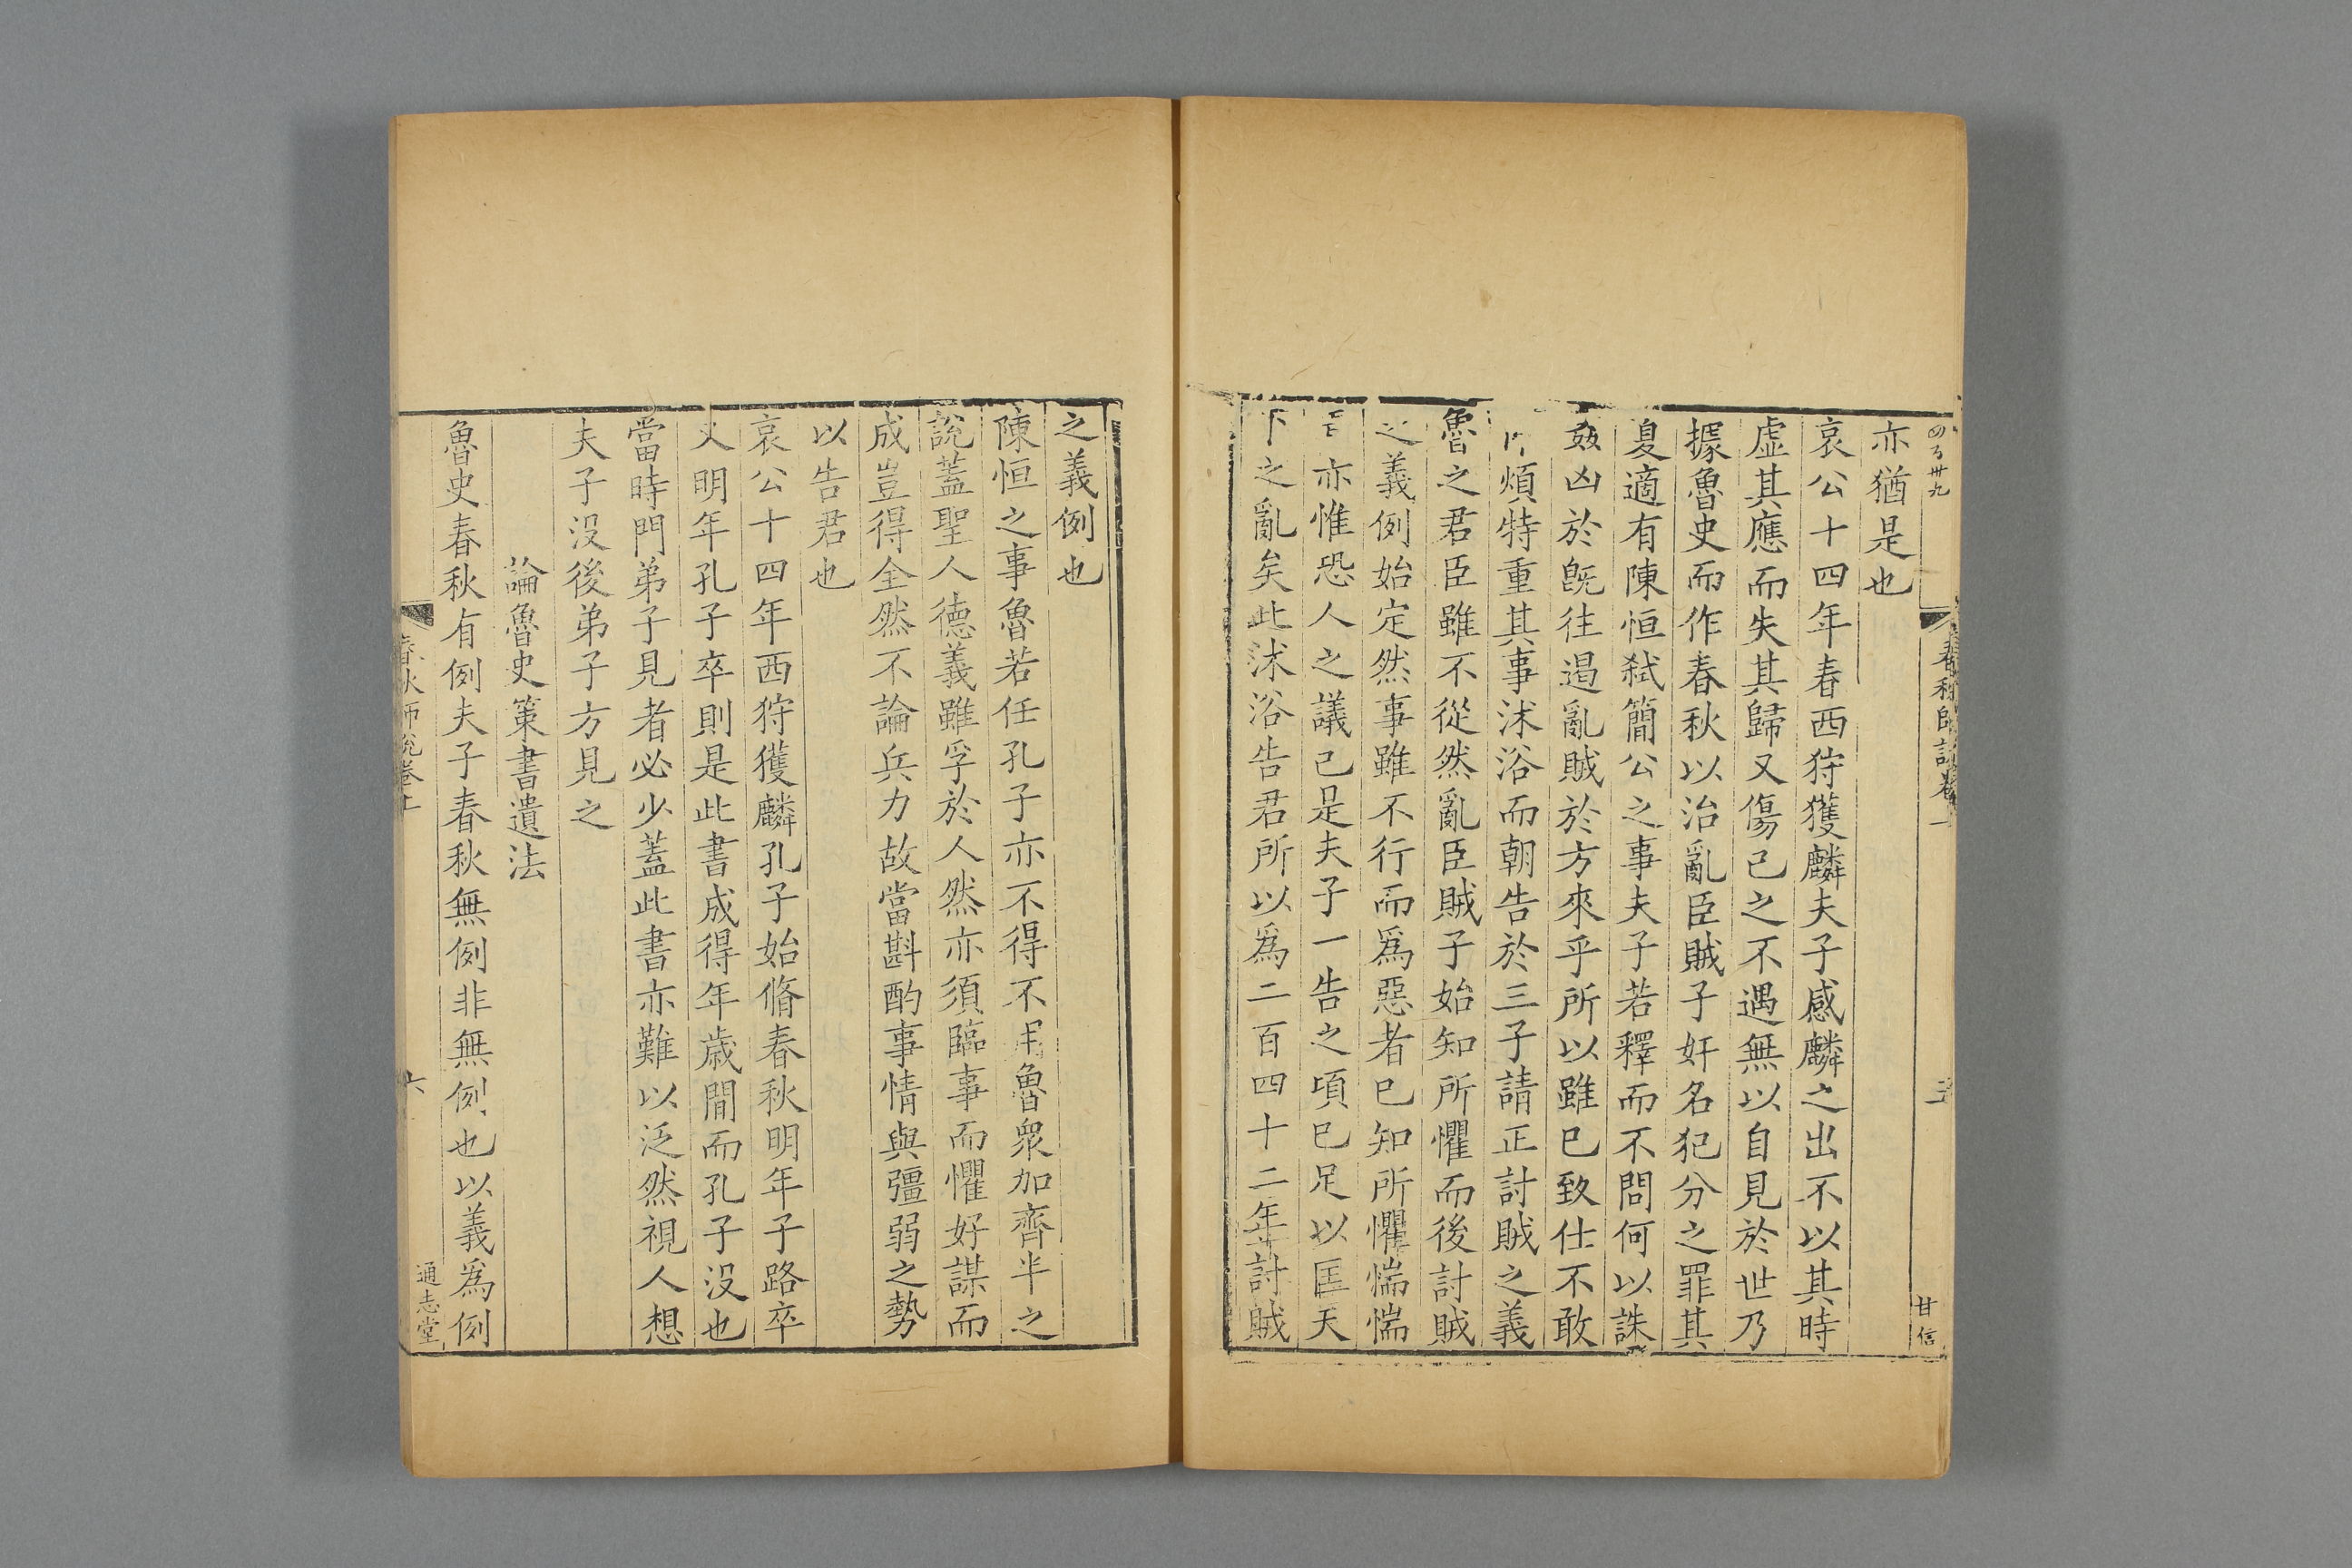 四百卅九
春秋師說卷
五
甘信
亦猶是也
哀公十四年春西狩獲麟夫子感麟之出不以其時
虚其應而失其歸又傷已之不遇無以自見於世乃
據魯史而作春秋以治亂臣賊子奸名犯分之罪其
夏適有陳恒弑簡公之事夫子若釋而不問何以誅
姦凶於旣往遏亂賊於方來乎所以雖已致仕不敢
煩特重其事沐浴而朝告於三子請正討賊之義
魯之君臣雖不從然亂臣賊子始知所懼而後討賊
之義例始定然事雖不行而爲惡者已知所懼惴惴
亦惟恐人之議己是夫子一告之頃已足以匡天
下之亂矣此沐浴告君所以爲二百四十二年討賊
之義例也
陳恒之事魯若任孔子亦不得不用魯衆加齊半之
說蓋聖人德義雖孚於人然亦須臨事而懼好謀而
成豈得全然不論兵力故當斟酌事情與彊弱之勢
以告君也
哀公十四年西狩獲麟孔子始脩春秋明年子路卒
又明年孔子卒則是此書成得年歲間而孔子没也
當時門弟子見者必少蓋此書亦難以泛然視人想
夫子没後弟子方見之
論魯史策書遺法
魯史春秋有例夫子春秋無例非無例也以義爲例
春秋師說卷上
六
通志堂